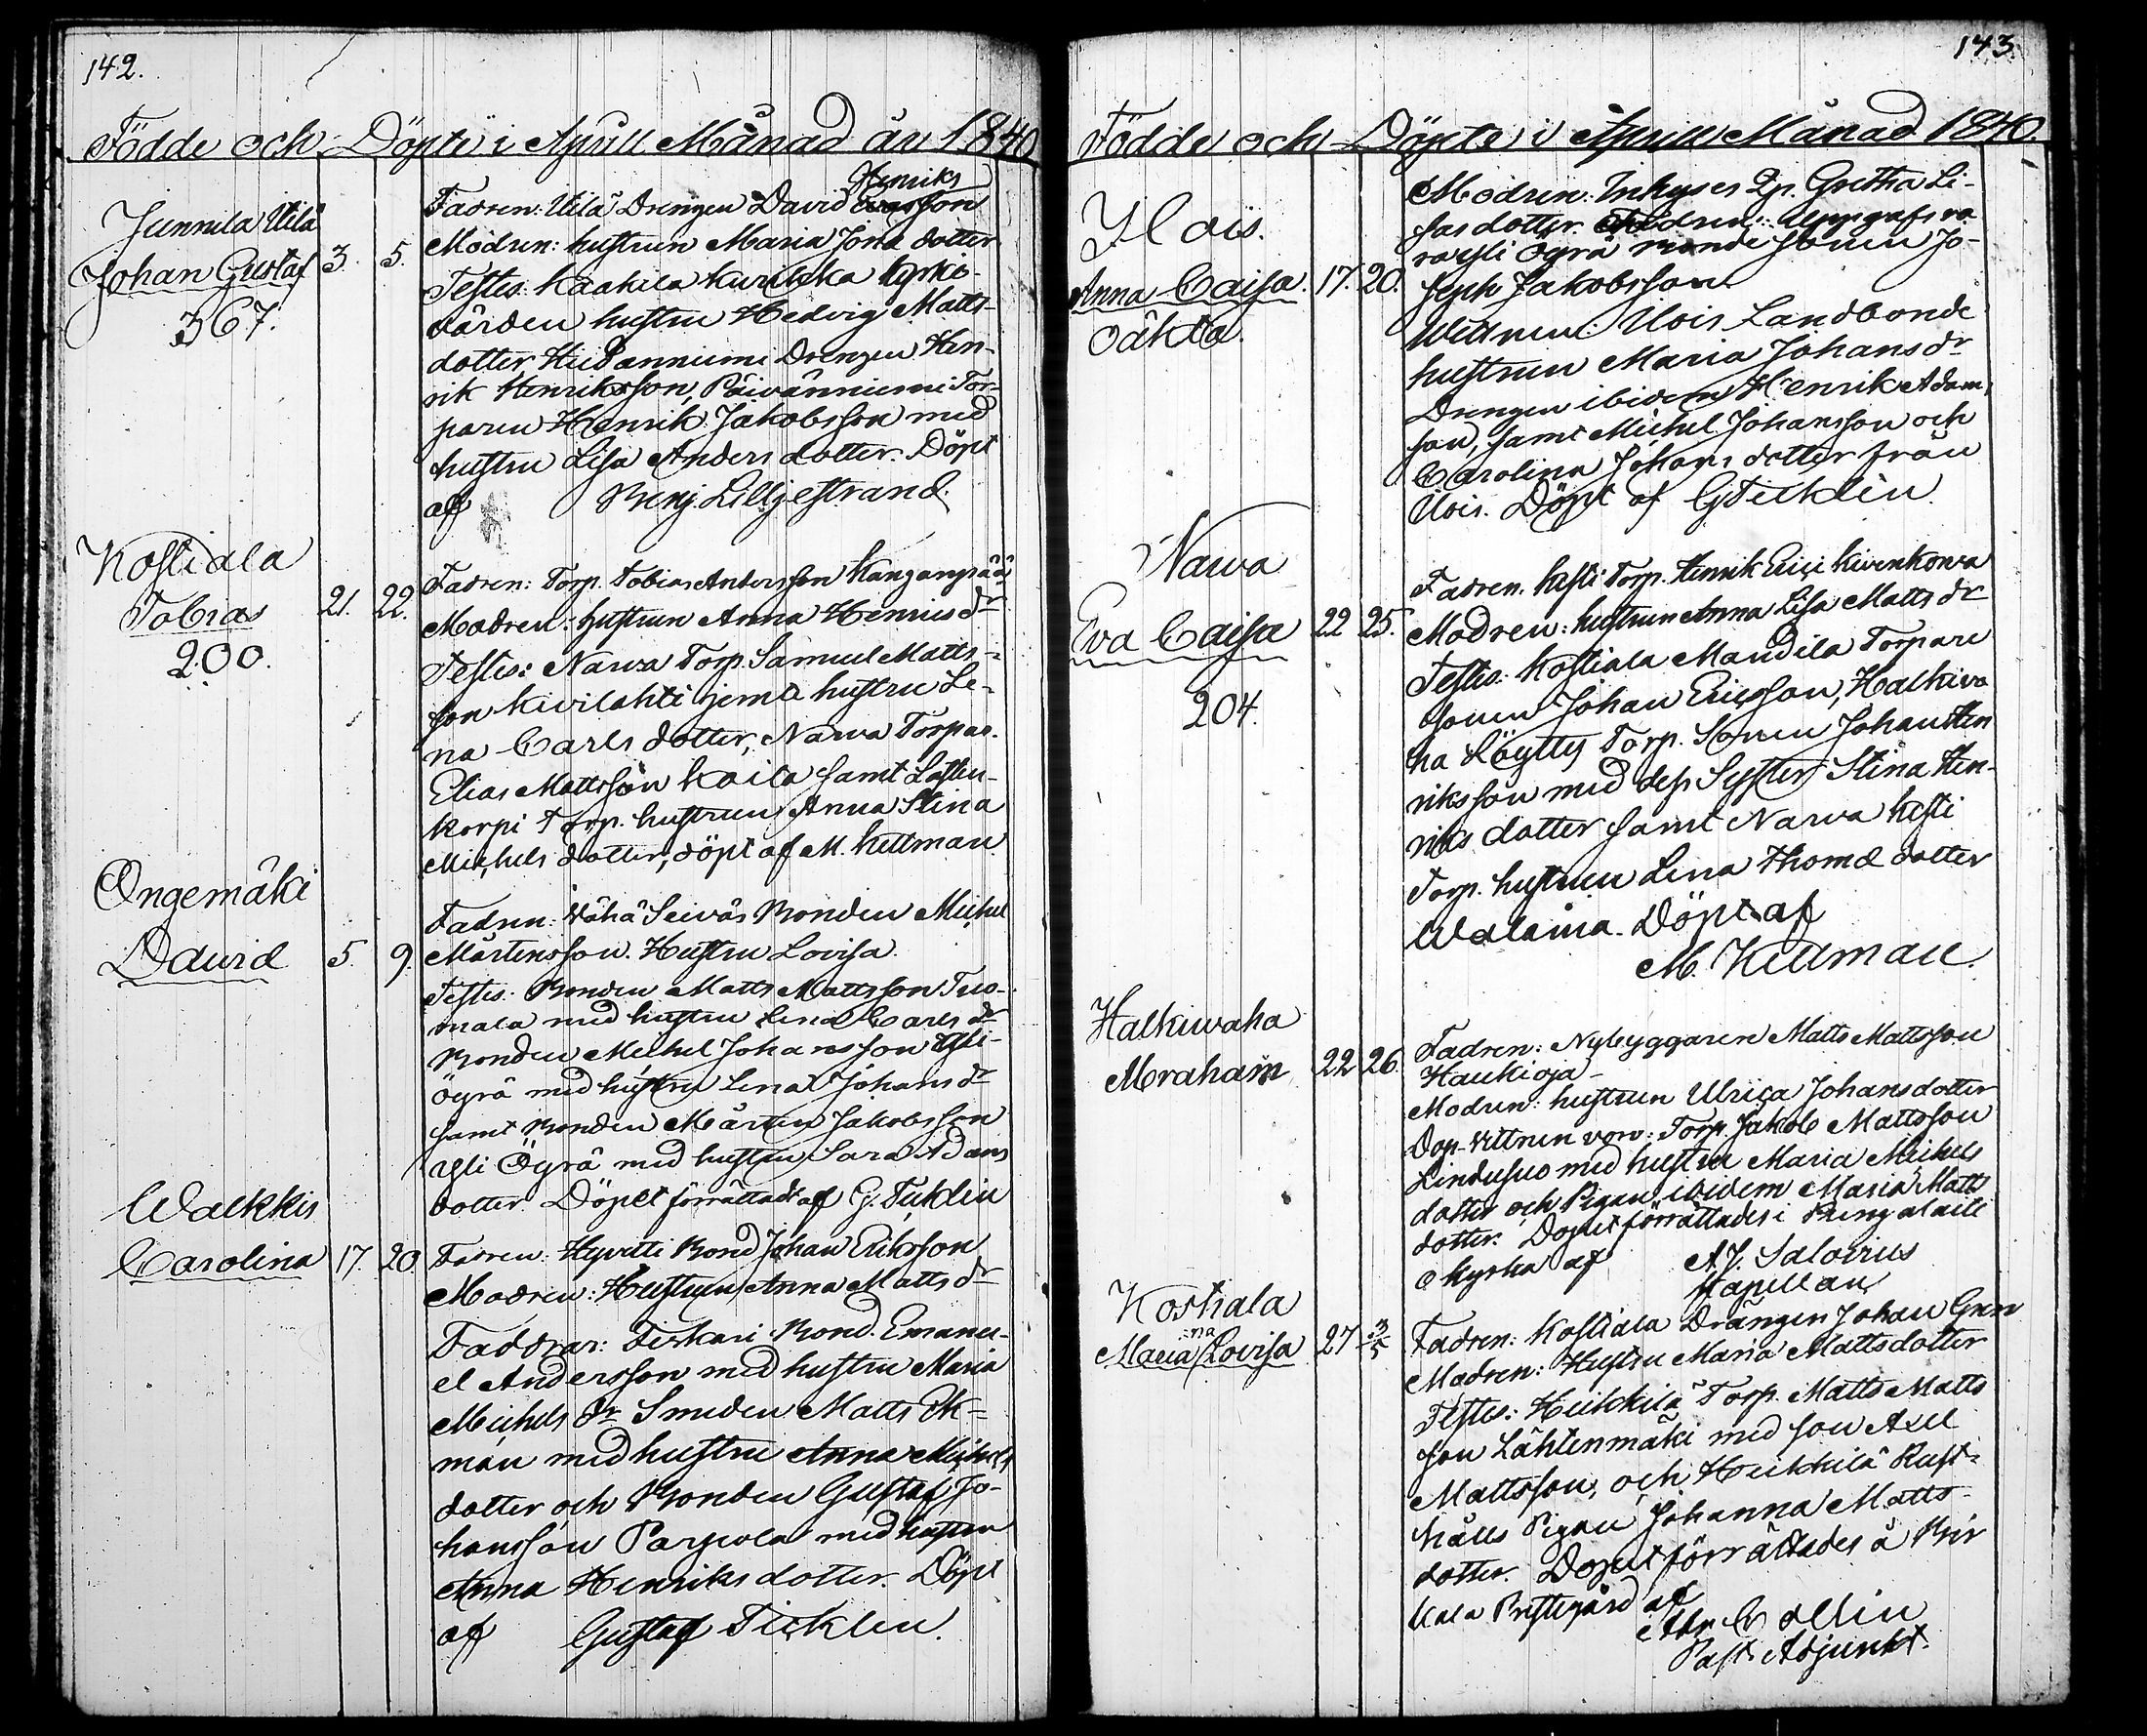 142.
Födde och Döpte i Aprill Månad år 1840
Junnila Uitä
Johan Gustaf 3. 5.
367.
Henriks
Fadren: Uitä Drengen David son
Modren: hustrun Maria Jona dotter
Testes: Kaakila Kurikka kyrkio-
vården hustru Hedvig Matts-
dotter, Hiidanniemi Drengen Hen-
rik Henriksson, Päivänniemi Tor-
paren Henrik Jakobsson med
hustru Lisa Anders dotter. Döpt
af Benj. Lilljestrand.
Kostiala
Tobias 21. 22.
200.
Fadren: Torp. Tobias Andersson Kangaspää
Modren: hustrun Anna Henrics dr
Testes: Nawa Torp. Samuel Matts-
son Kivilahti jemte hustru Le-
na Carls dotter, Nawa Torpar.
Elias Mattsson Koila samt Lasten-
korpi Torp. hustrun Anna Stina
Michels dotter, döpt af M. Kellman.
Ongemäki
David 5. 9.
Fadren: Vähä Seiväs Bonden Michel
Mårtensson. Hustru Lovisa.
Testes: Bonden Matts Mattsson Tuo-
mala med hustru Lena Carls dr
Bonden Michel Johansson Yli-
Ögrä med hustru Lena Johans dr
samt Bonden Mårten Jakobsson
Yli Ögrä med hustru Sara Adams
dotter. Döpelt förrättadt af G. Ticklén
Walkkis
Carolina 17. 20
Fadren: Hyvitti Bond Johan Eriksson
Modren: Hustrun Anna Matts dr
Faddrar: Tiskari Bond. Emanu-
el Andersson med hustru Maria
Michels dr Smeden Matts Ek-
man med hustru Anna Michels
dotter och Bonden Gustaf Jo-
hansson Parjeola med hustru
Anna Henriks dotter. Döpt
af Gustaf Ticklen.
143.
Födde och Döpte i Aprill Månad 1840.
Ilois.
Anna Caisa. 17. 20.
oäkta.
Modren: Inhyses Qp. Gretha Li-
sas dotter. Fadren: Uppgifves va-
ra Yli Ögrä Bonde Sonen Jo-
seph Jakobsson.
Wittnen: Ilois Landbonde
hustrun Maria Johans dr
Drengen ibidem Henrik Adam
son, samt Michel Johansson och
Carolina Johans dotter från
Ilois. Döpt af G Ticklén.
Nawa
Eva Caisa 22 25.
204.
Fadren. Kesti Torp. Henrik Erici Kivenkorva
Modren: hustrun Anna Lisa Matts dr
Testes: Kostiala Mandila Torpare
Sonen Johan Ericsson, Halkiva
ha Löyttö Torp. Sonen Johan Hen
riksson med dess Syster Stina Hen-
riks dotter samt Nawa Kesti
Torp. hustrun Lena Thomæ dotter
Walama. Döpt af
M. Kellman.
Halkiwaha
Abraham 22 26.
Fadren: Nybyggaren Matts Mattsson
Haukioja-
Modren: hustrun Ulrica Johansdotter
Dop-Vittnen voro: Torp. Jakob Mattsson
Lindusuo med hustru Maria Michels
dotter och Pigan ibidem Maria Matts
dotter. Dopet förrättades i Pungalaiti
Kyrka af A. J. Salovius
Kapellan
Kostiala
na
Maria Lovisa 27 3/5
Fadren: Kostiala Drängen Johan Gran
Modren: Hustru Maria Mattsdotter
Testes: Heikkilä Torp. Matts Matts
son Lähtenmäki med son Axel
Mattsson, och Heikkilä Rust-
hålls Pigan Johanna Matts-
dotter. Dopet förrättades å Bir
kala Prestgård af
Adr. Collin
Past. Adjunkt.